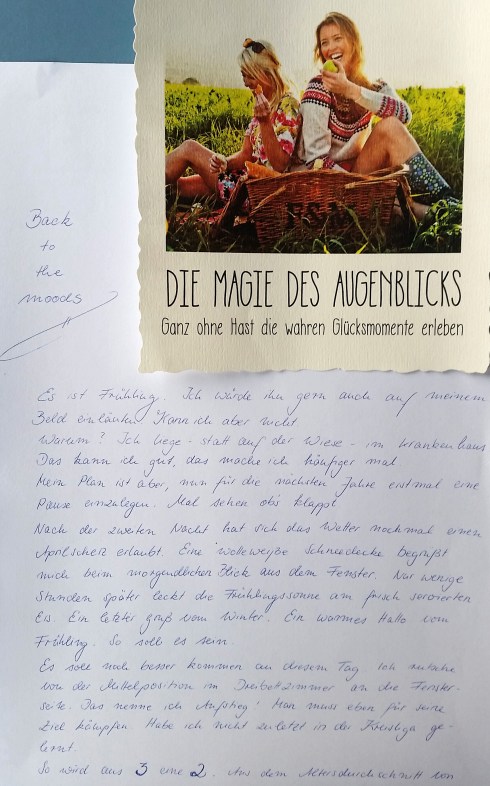 Back
to
the
moods
DIE MAGIE DES AUGENBLICKS
Ganz ohne Hast die wahren Glücksmomente erleben
Es ist Frühling. Ich würde ihn gern auch auf meinem
Bild einläuten. Kann ich aber nicht
Warum? Ich liege - statt auf der Wiese - im Krankenhaus
Das kann ich gut, das mache ich häufiger mal
Mein Plan ist aber, nun für die nächsten Jahre erstmal eine
Pause einzulegen. Mal sehen ob's klappt
Nach der zweiten Nacht hat sich das Wetter nochmal einen
Aprilscherz erlaubt. Eine wolleweiße Schneedecke begrüßt
mich beim morgendlichen Blick aus dem Fenster. Nur wenige
Stunden später leckt die Frühlingssonne am frisch servierten
Eis. Ein letzter gruß vom Winter. Ein warmes Hallo vom
Frühling. So soll es sein.
Es soll noch besser kommen an diesem Tag Ich rutsche
von der Mittelposition im Dreibettzimmer an die Fenster-
seite. Das nenne ich Aufstieg! Man muss eben für seine
Ziel kämpfen. Habe ich nicht zuletzt in der Kreisliga ge-
lernt.
So wird aus 3 eine 2. Aus dem Altersdurchschnitt von